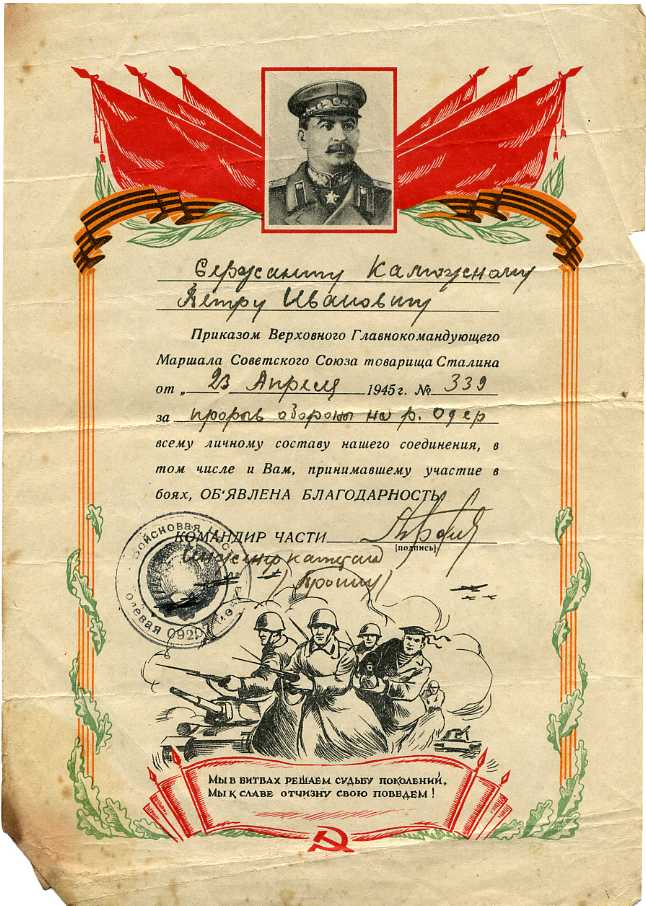 Сержанту Калюжному
Петру Ивановичу
Приказом Верховного Главнокомандующего
Маршала Советского Союза товарища Сталина
от „23 Апреля 1945 г. № 339
за прорыв обороны на р. Одер
всему личному составу нашего соединения, в
том числе и Вам, принимавшему участие в
боях, ОБ'ЯВЛЕНА БЛАГОДАРНОСТЬ
КОМАНДИР ЧАСТИ
(подпись)
Инженер капитан
Войсковая
полевая 092
Мы в битвах решаем судьбу поколений,
Мы к славе отчизну свою поведем!